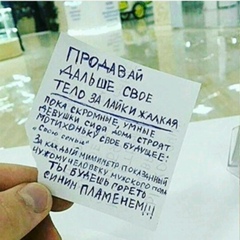 ПРОДАВАЙ
ДАЛЬШЕ СВОЕ
ТЕЛО ЗА ЛАЙКИ ЖАЛКАЯ
ПОКА СКРОМНЫЕ, УМНЫЕ
ДЕВУШКИ СИДЯ ДОМА СТРОЯТ
ПОТИХОНЬКУ СВОЕ БУДУЩЕЕ:
"Свою семью"
ЗА КАЖДЫЙ МИЛИМЕТР ПОКАЗАННЫЙ
ЧУЖОМУ ЧЕЛОВЕКУ МУЖСКОГО ПОЛА
ТЫ БУДЕШЬ ГОРЕТЬ
СИНИМ ПЛАМЕНЕМ!!!